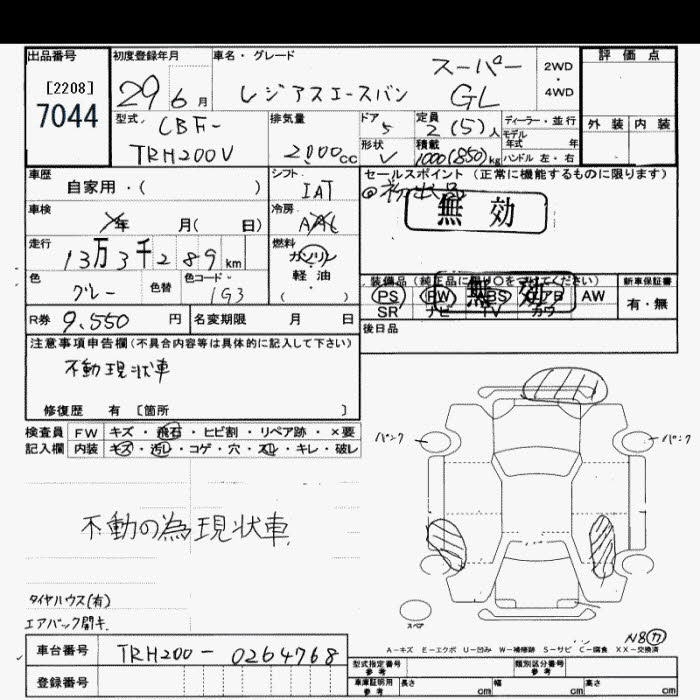 出品番号
[2208]
7044
初度登録年月
29 6月
車名・グレード
レジアスエースバン スーパー GL
2WD
・
4WD
評価点
外装 内装
型式.
CBF-
TRH200V
排気量
2000cc
ドア
5
形状
V
定員
2(5)人
積載
1000(850)kg
ディーラー・並行
モデル
年式 年
ハンドル 左・右
車歴
自家用・( )
シフト
IAT
車検
年 月( 日)
冷房
AAC
走行
13万3千289km
燃料
ガソリン
・
軽油
( )
色
グレー
色替
色コード・
1G3
R券 9.550円
名変期限 月 日
セールスポイント(正常に機能するものに限ります)
◎初出品
無効
装備品(純正品に限り○をつけてください)
PS PW ABS エアB AW
SR ナビ TV カワ
無効
新車保証書
有・無
後日品
注意事項申告欄(不具合内容等は具体的に記入して下さい)
不動現状車
修復歴 有〔箇所 〕
検査員 FW キズ・飛石・ヒビ割・リペア跡・×要
記入欄 内装 キズ・汚レ・コゲ・穴・スレ・キレ・破レ
パンク
パンク
不動の為現状車
タイヤハウス(有)
エアバック開キ.
スペア
N8(カ)
A-キズ E-エクボ U-凹み W-補修跡 S-サビ C-腐食 XX-交換済
車台番号 TRH200-0264768
登録番号
型式指定番号
参考
類別区分番号
参考
車庫証明用
参考
長さ cm
幅 cm
高さ cm